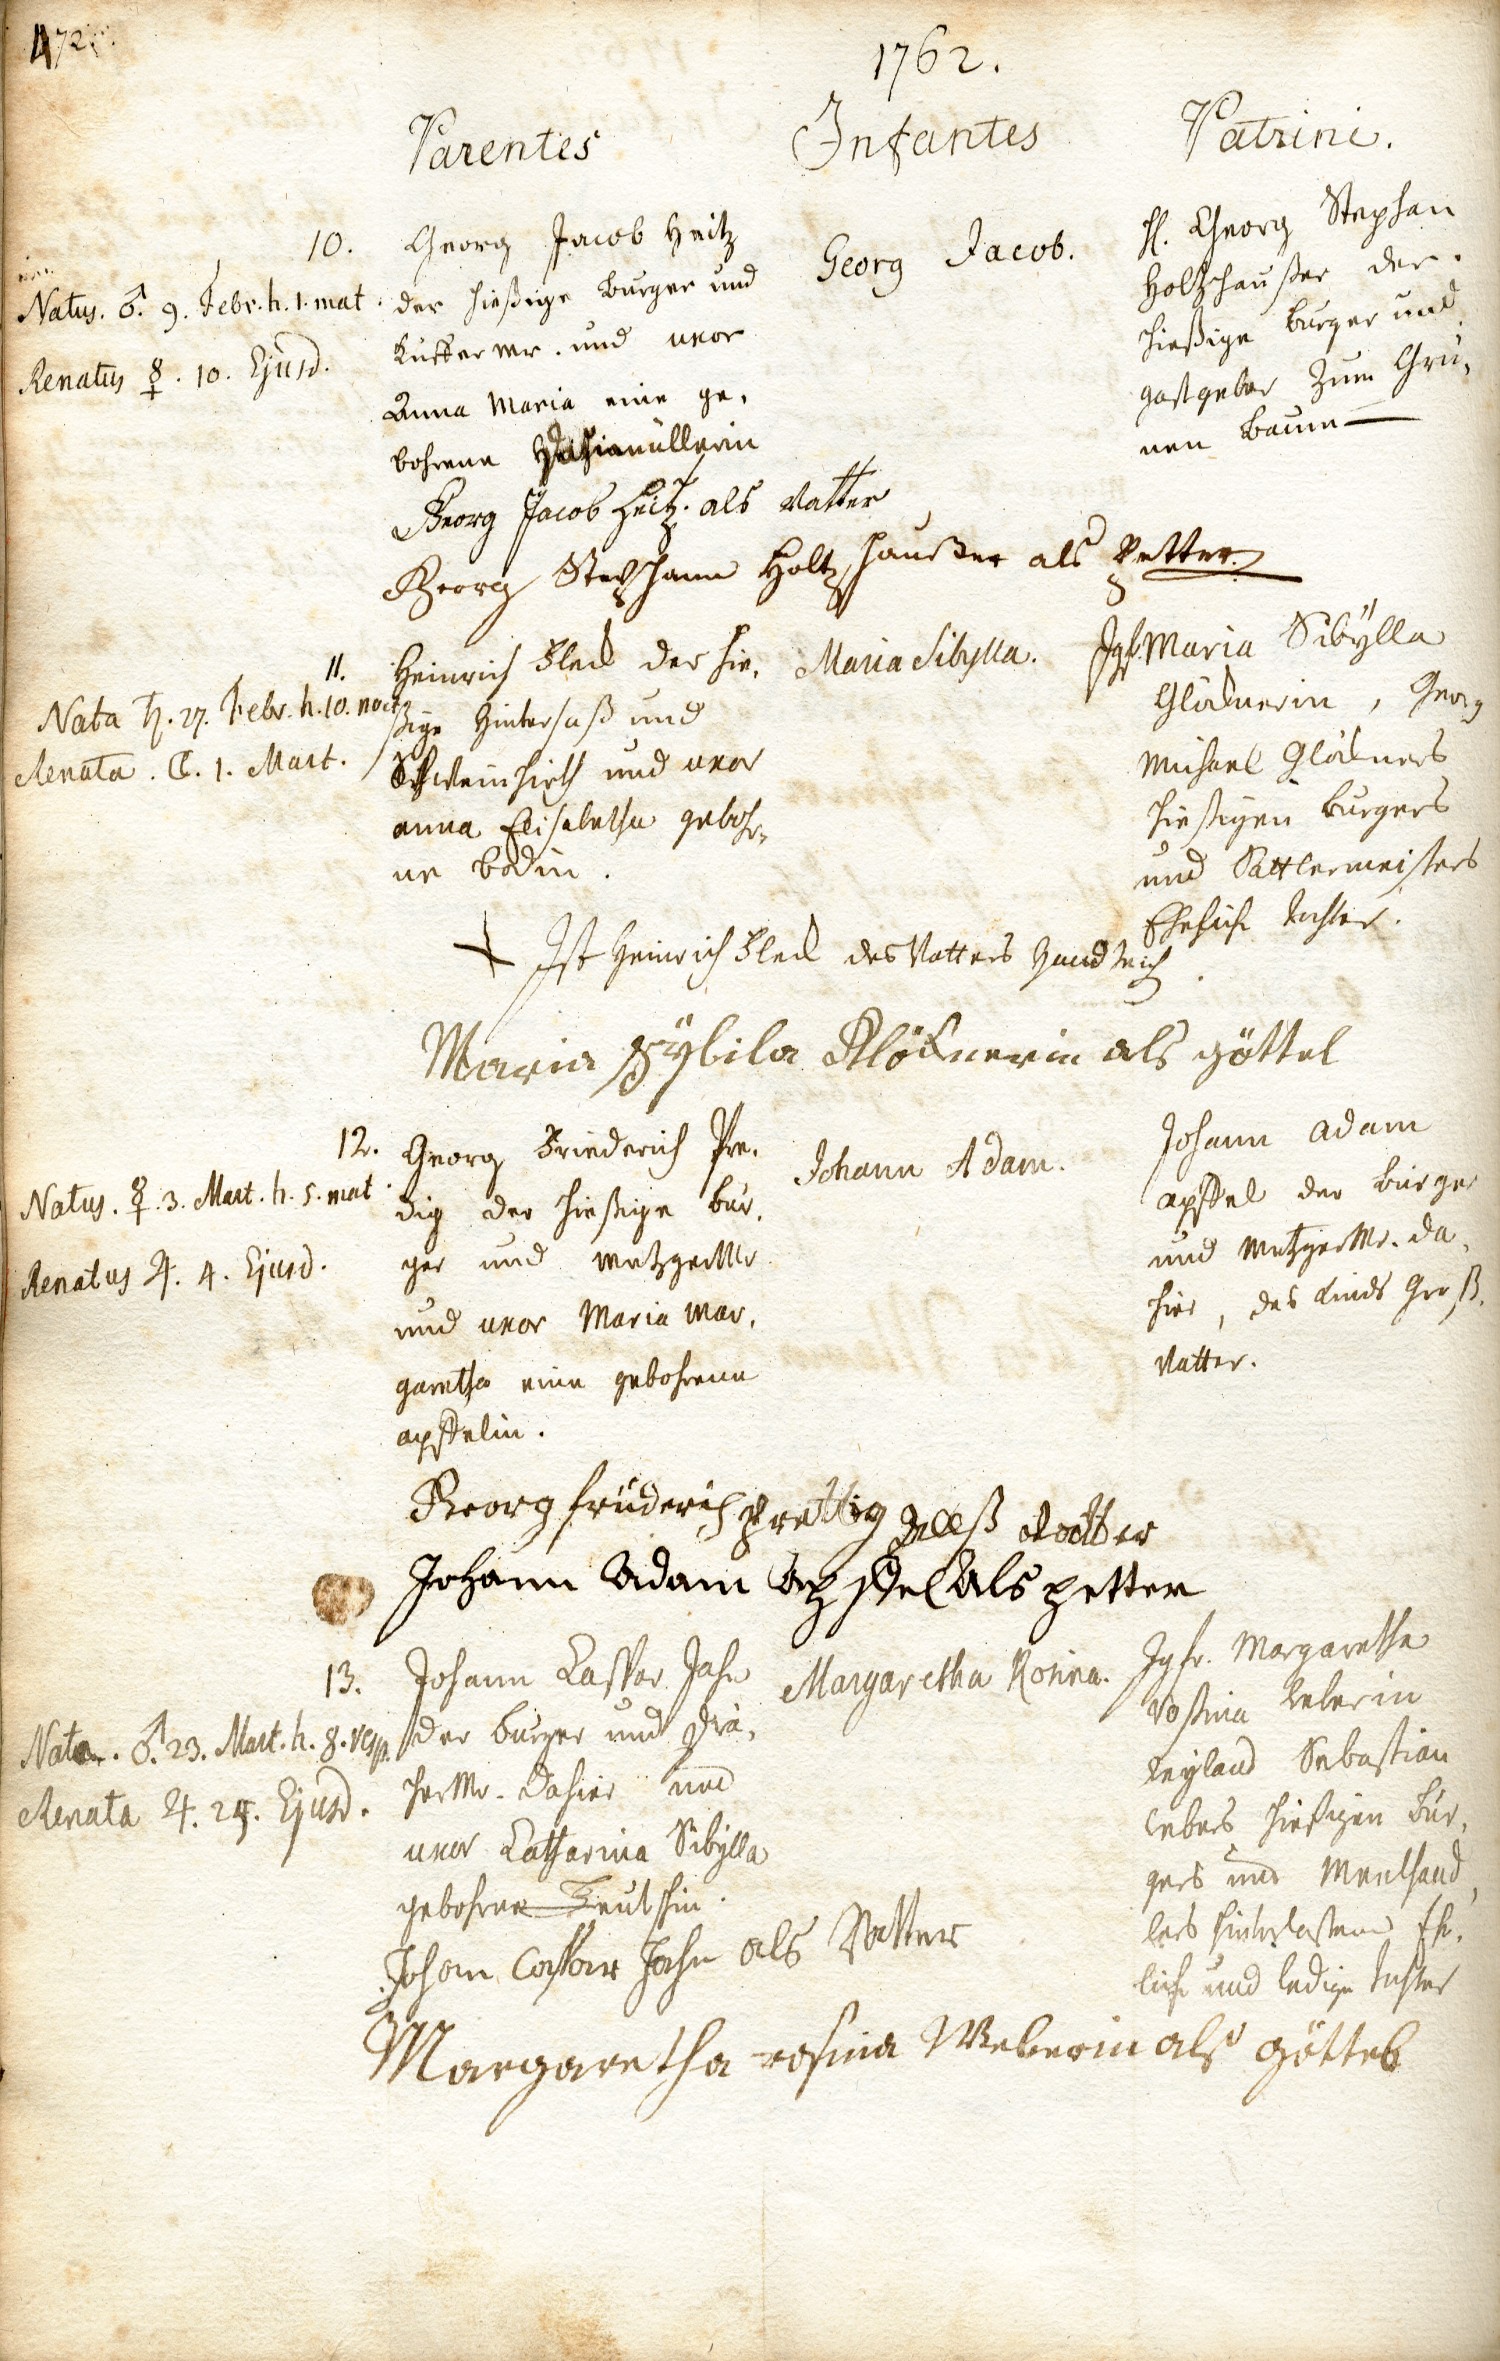 472.
1762.
Parentes
Infantes
Patrini.
10.
Natus. ♂. 9. Febr. h. 1. mat.
Renatus ☿. 10. Ejusd.
Georg Jacob Heitz
der hießige Burger und
Kuffermr. und uxor
Anna Maria eine ge,
bohrene
Georg Jacob.
H. Georg Stephan
Holtzhaußer der
hießige burger und
gastgeber zum Grü,
nen Baum
Georg Jacob Heitz. als Vatter
Georg Stephann Holtzhaußer als Petter
11.
Nata ♄. 27. Febr. h. 10. noct.
Renata. ☾. 1. Mart.
Heinrich Fleck der hie,
ßige Hintersaß und
Schweinhirth und uxor
anna Elisabetha gebohr,
ne Bodin.
Maria Sibylla.
Jgf. Maria Sibÿlla
Glöcknerin, Georg
Michael Glöckners
hießigen burgers
und Sattlermeisters
Eheliche tochter.
Ist Heinrich Fleck des Vatters Handzeich
Maria Sÿbila Klöcknerin als göttel
12.
Natus. ☿. 3. Mart. h. 5. mat.
Renatus ♃. 4. Ejusd.
Georg Friederich Pre,
dig der hießige bur,
ger und metzgerMr
und uxor Maria Mar,
garetha eine gebohrene
apffelin.
Johann Adam.
Johann adam
apffel der burger
und MetzgerMr. da,
hier, des Kinds Groß,
Vatter.
Georg früderich Prettig Vatter
Johann Adam Apffel Als petter
13.
Nata. ♂. 23. Mart. h. 8. vesp.
Renata ♃. 25. Ejusd.
Johann Casspar Jahn
der burger und
dahier und
uxor Catharina Sibÿlla
gebohrne
Margaretha Rosina.
Jgfr. Margaretha
Roßina Weberin
weyland Sebastian
Webers hießigen Bur,
gers und Meelhänd,
lers hinterlaßene Ehe,
liche und ledige tochter
Johan Caspar Jahn als Vatter
Margaretha rosina Weberin als göttel